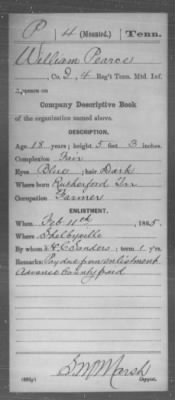 P 4 (Mounted.) Tenn.
William Pearce
Co. , 4 Reg't Tenn. Mtd. Inf.
Appears on
Company Descriptive Book
of the organization named above.
DESCRIPTION.
Age 18 years; height 5 feet 3 inches.
Complexion Fair
Eyes Blue; hair Dark
Where born Rutherford Tn
Occupation Farmer
ENLISTMENT.
When Feb 11th, 1865.
Where Shelbyville
By whom Sanders; term 1 yrs.
Remarks: Pay due from enlistment
Advance Bounty paid
Marsh
Copyist.